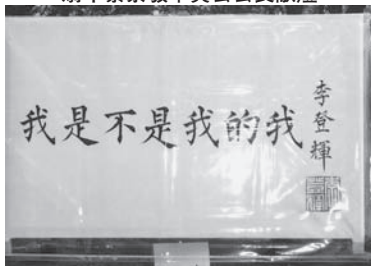 我是不是我的我
李登輝